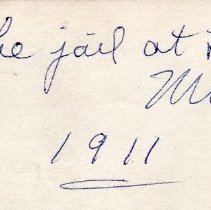 he jail at
M
1911